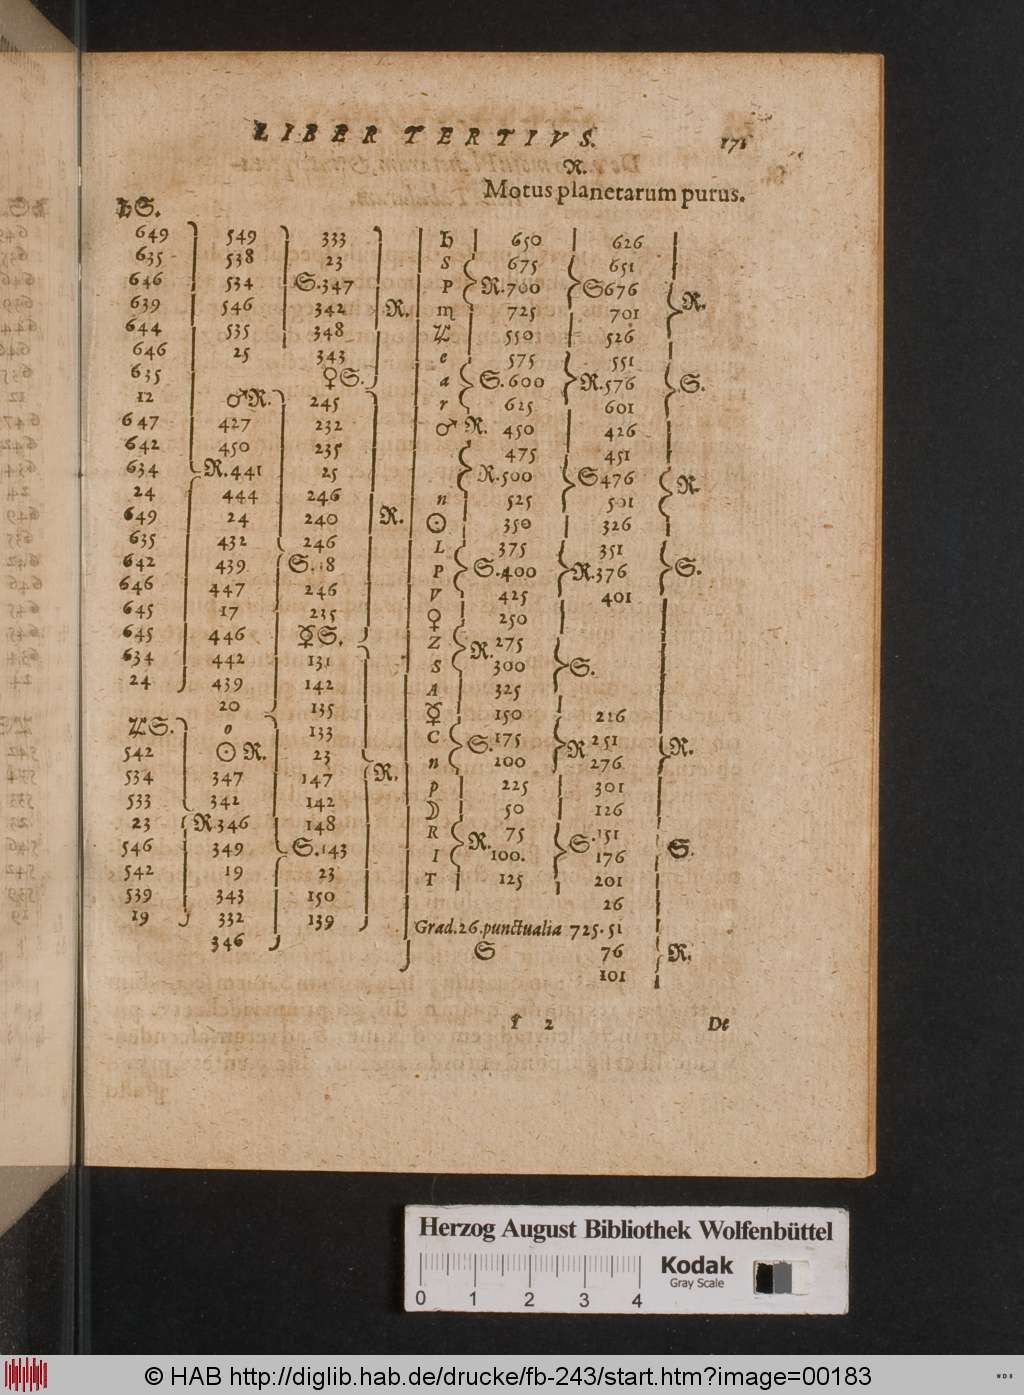 LIBER TERTIVS. 171
R.
Motus planetarum purus.
♄S.
649 549 333 ♄ 650 626
635 538 23 S 675 651
646 534 S.347 P R.700 S676
639 546 342 R. m 725 701 R.
644 535 348 ♃ 550 526
646 25 343 e 575 551
635 ♀S. a S.600 R.576 S.
12 ♂R. 245 r 625 601
647 427 232 ♂ R. 450 426
642 450 235 475 451
634 R.441 25 R.500 S476 R.
24 444 246 n 525 501
649 24 240 R. ☉ 350 326
635 432 246 L 375 351
642 439 S.18 P S.400 R.376 S.
646 447 246 V 425 401
645 17 235 ♀ 250
645 446 ☿S. Z R.275
634 442 131 S 300 S.
24 439 142 A 325
20 135 ☿ 150 226
♃S. o 133 C S.175 R 251 R.
542 ☉R. 23 n 200 276
534 347 147 R. p 225 301
533 342 142 ☽ 50 126
23 R346 148 R R. 75 S.151
546 349 S.143 I 100. 176 S.
542 19 23 T 125 201
539 343 150 26
19 332 139 Grad.26.punctualia 725.51
346 S 76 R.
101
f 2 De
Herzog August Bibliothek Wolfenbüttel
Kodak
Gray Scale
0 1 2 3 4
© HAB http://diglib.hab.de/drucke/fb-243/start.htm?image=00183